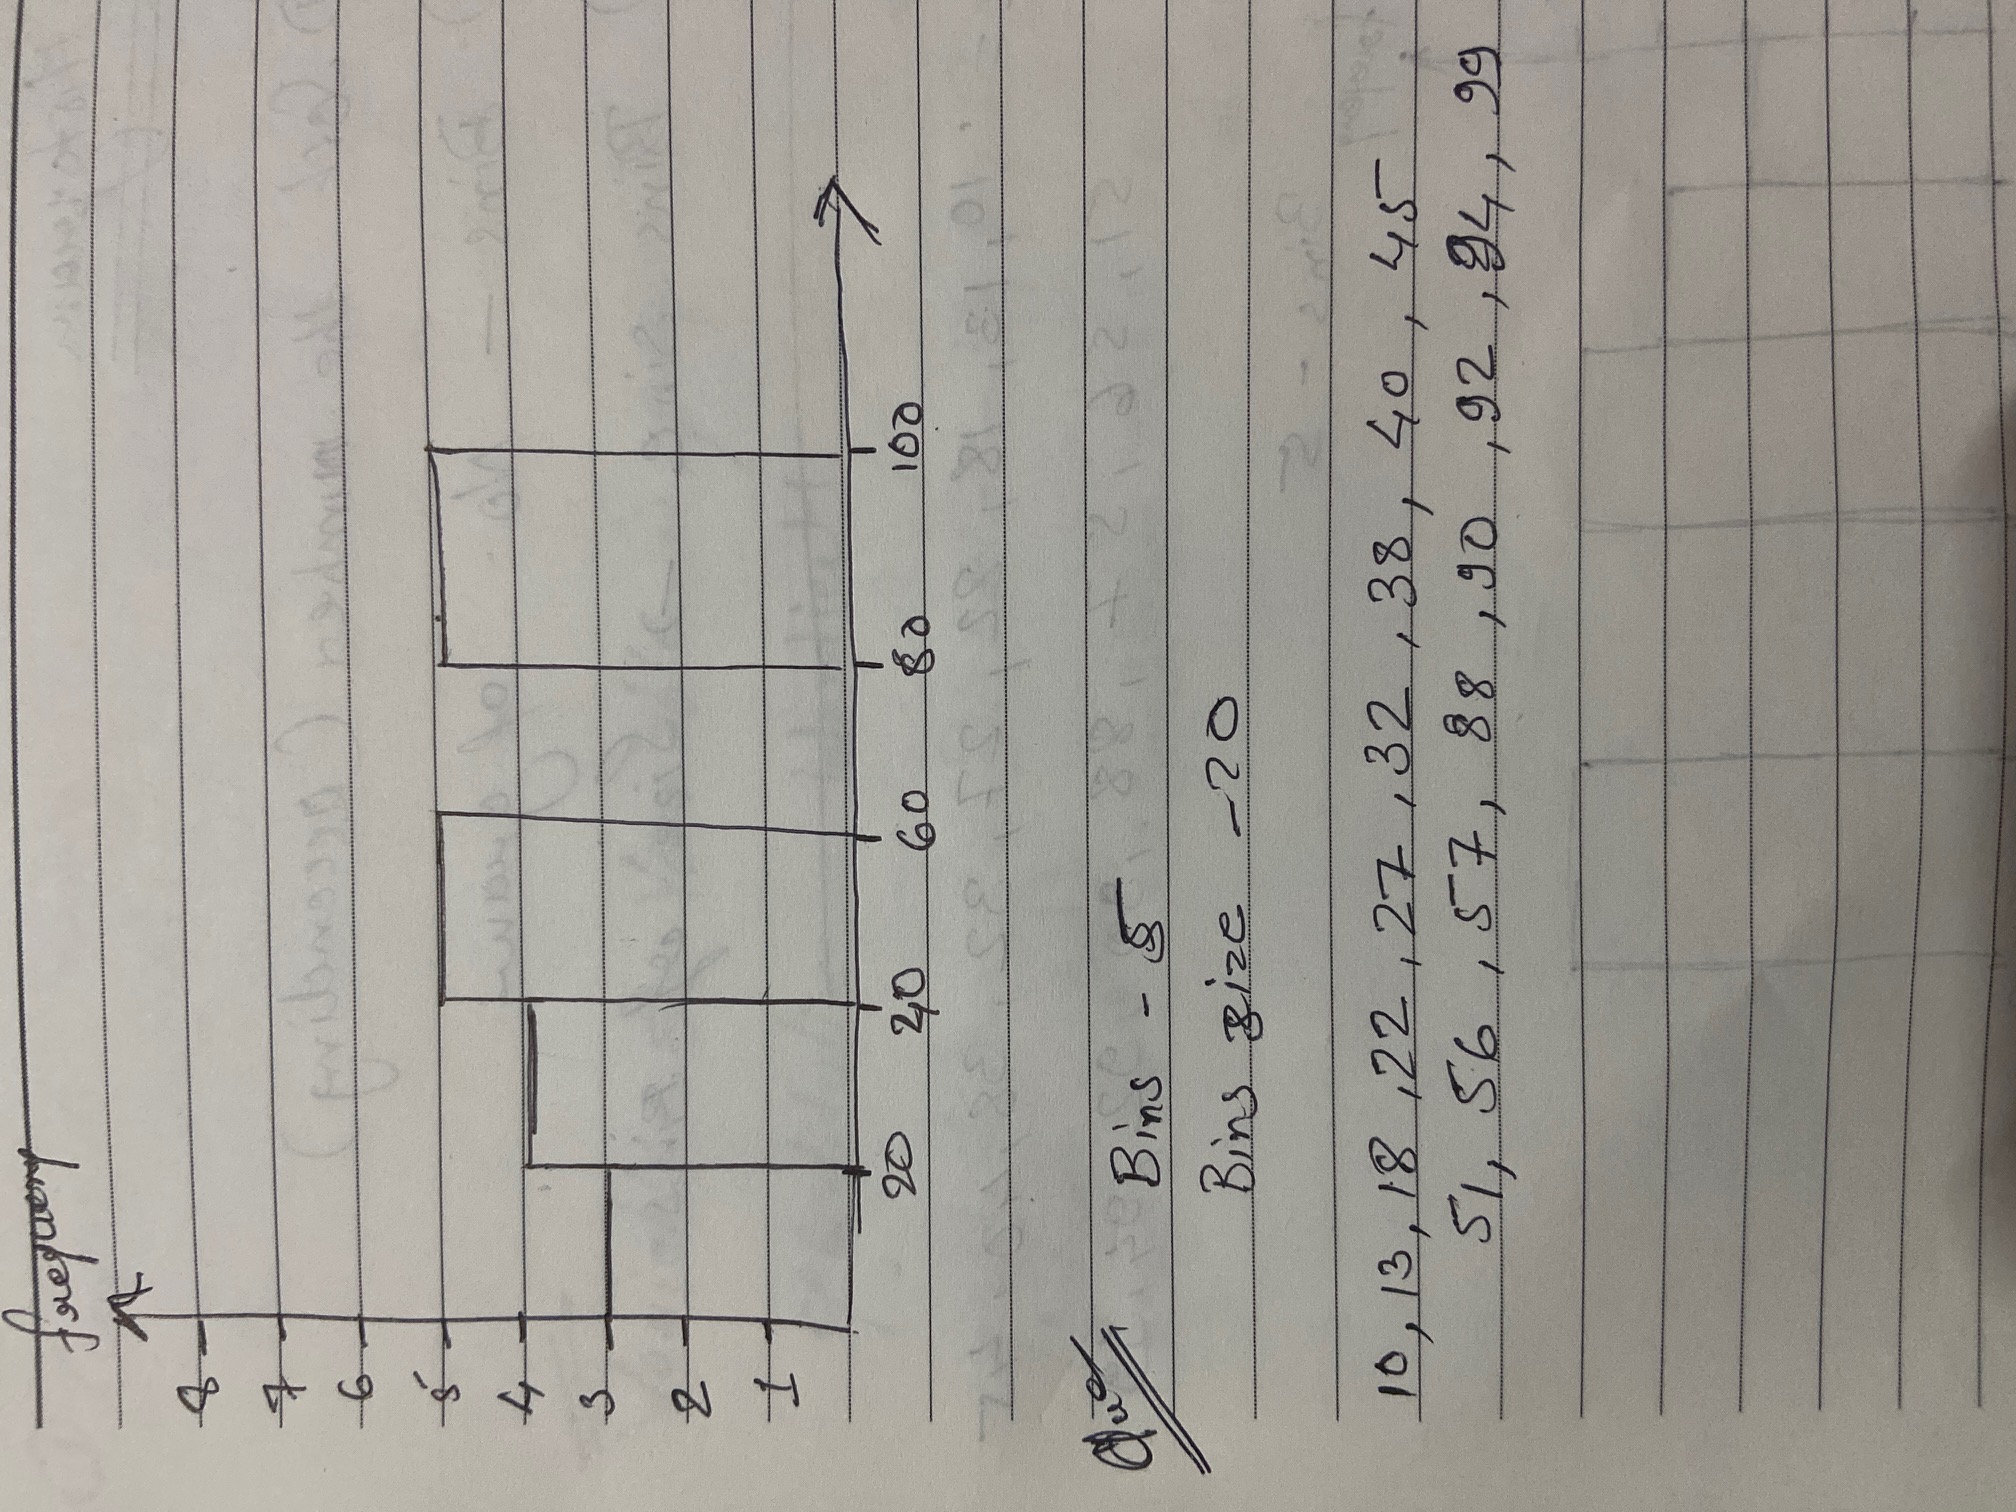 frequency
8
7
6
5
4
3
2
1
20 40 60 80 100
Que
Bins - 5
Bins size - 20
10, 13, 18, 22, 27, 32, 38, 40, 45
51, 56, 57, 88, 90, 92, 94, 99